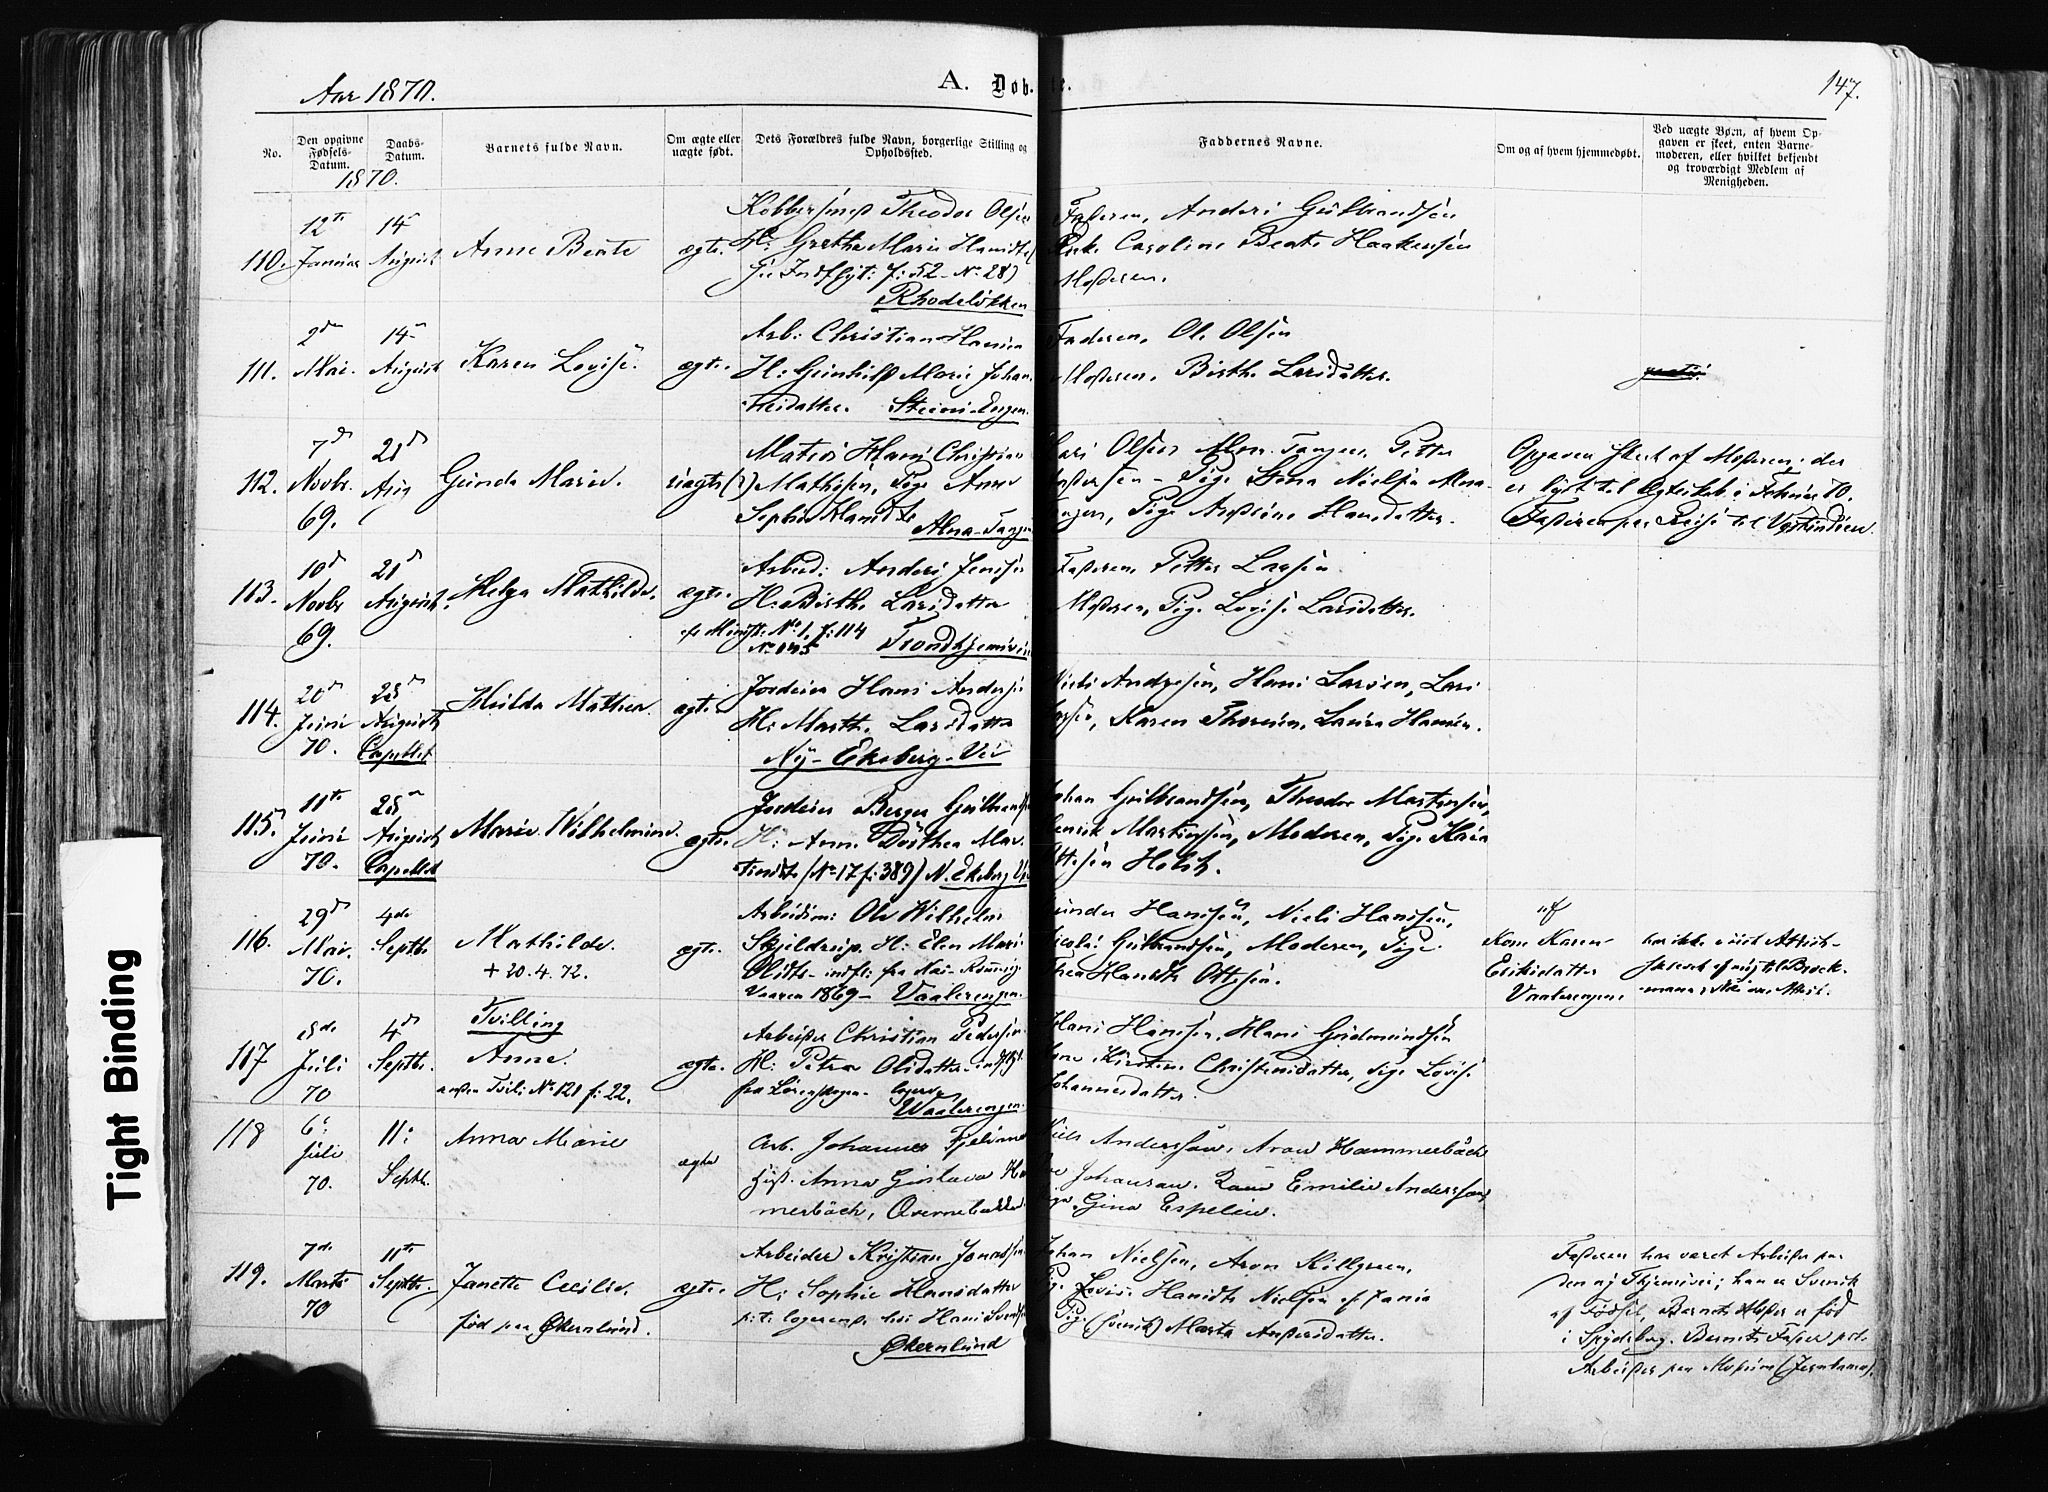 Aar 1870.
A. Døbte.
147.
No.
Den opgivne Fødsels-Datum.
Daabs-Datum.
Barnets fulde Navn.
Om ægte eller uægte født.
Dets Forældres fulde Navn, borgerlige Stilling og Opholdssted.
Faddernes Navne.
Om og af hvem hjemmedøbt.
Ved uægte Børn, af hvem Opgaven er skeet, enten Barnemoderen, eller hvilket bekjendt og troværdigt Medlem af Menigheden.
1870.
110. 12te Januar
14 August
Anne Beate
ægte.
Theodor Olsen
H: Grethe Marie
f: 52 - No 28)
Rhodeløkken
Faderen, Anders Gulbrandsen
Caroline Beate Haakensen
Moderen.
111. 2den Mai.
14 August
Karen Lovise.
ægte.
Arb: Christian Hansen
H: Marie Johan-
nesdatter.
Faderen, Ole Olsen
Moderen, Birthe Larsdatter.
112. 7d Novbr. 69.
21d Aug
Gunda Marie.
uægte (?)
Matros Hans Christian
Mathisen, Pige Anne
Sophie Hansdtr
Alna-Tangen
Lars Olsen Alna-Tangen, Petter
Pedersen - Pige Lena Nielsen Alna-
Tangen, Pige Hansdatter.
Opgaven skeet af Moderen; der
er lyst til Ægteskab i Februar 70.
Faderen paa Reise til Vestindien.
113. 10d Novbr 69.
21d August.
Helga Mathilde.
ægte.
Arbeid: Anders Jensen
H: Birthe Larsdatter
cf. Minist: No 1, f: 114
No 145
Trondhjemsveien
Faderen, Petter Larsen
Moderen, Pige Lovise Larsdatter.
114. 20d Juni 70.
28d August
Capellet
Hulda Mathea.
ægte.
Jordeier Hans Andersen
H: Marthe Larsdatter
Ny-Ekeberg-Vei
Niels Andresen, Hans Larsen, Lars
Larsen, Karen Thoresen, Laura Hansen.
115. 11te Juni 70.
28d August
Capellet
Marie Wilhelmine.
ægte.
Jordeier Berger Gulbrandsen
H: Anne Dorthea Mar-
tinsdtr (No 17 f: 389) N. Ekeberg Vei
Johan Gulbrandsen, Theodor Martinsen,
Henrik Martinsen, Moderen, Pige Karen
Ottesen Holst.
116. 29d Mai. 70.
4de Septbr.
Mathilde.
+ 20.4.72.
ægte.
Arbeidsm: Ole Wilhelm
Skjeldrup. H: Elen Marie
Olsdtr - indfl: fra
Vaaren 1869 - Vaalerengen.
Gunder Hansen, Niels Hansen,
Nicolai Gulbrandsen, Moderen, Pige
Thea Hansdtr Ottesen.
af
Kone Karen
Eriksdatter
Vaalerengen.
117 8de Juli 70
4d Septbr.
Tvilling
Anne.
anden Tvil: No 121 f: 22.
ægte.
Arbeider Christian Pedersen
H: Petra Olsdatter indflyt
fra Lørenskogen
Vaalerengen.
Hans Hansen, Hans Gudmundsen
Kirsten Christensdatter, Pige Lovise
Johannesdatter.
118 6: Juli 70.
11: Septbr.
Anna Marie
ægte
Arb. Johannes
Hust. Anna Gustava Ham-
merbäck,
Niels Anderson, Aron Hammerbäck
Johanson. Emilie Andersson,
Pige Gina Espelien.
119. 7de Marts 70
11te Septbr.
Janette Cecilie.
fød paa Økernlund.
ægte.
Arbeider Kristian Jonassen
H: Sophie Hansdatter
p: t: logerende hos Hans Svendsen
Økernlund
Johan Nielsen, Aron Killgreen,
Pige Lovise Hansdtr Nielsen
Pige (svensk) Marta Andersdatter.
Faderen har været Arbeider paa
den ny Thjemsvei; han er Svensk
af Fødsel, Barnets Moder er fød
i Spydeberg. Barnets Fader p.t.
Arbeider paa (Jernbanen).
Tight Binding